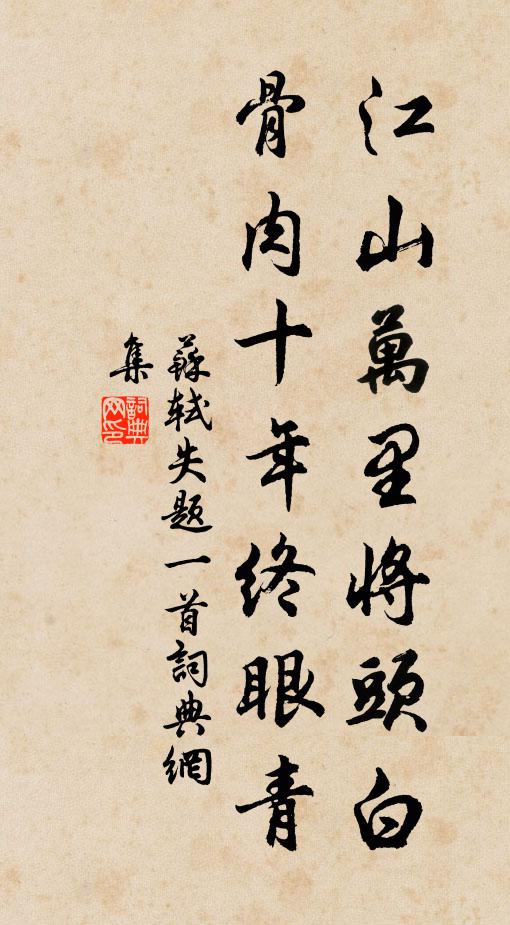 江山萬里將頭白
骨肉十年終眼青
蘇軾失题一首詞典網
集
詞典网印